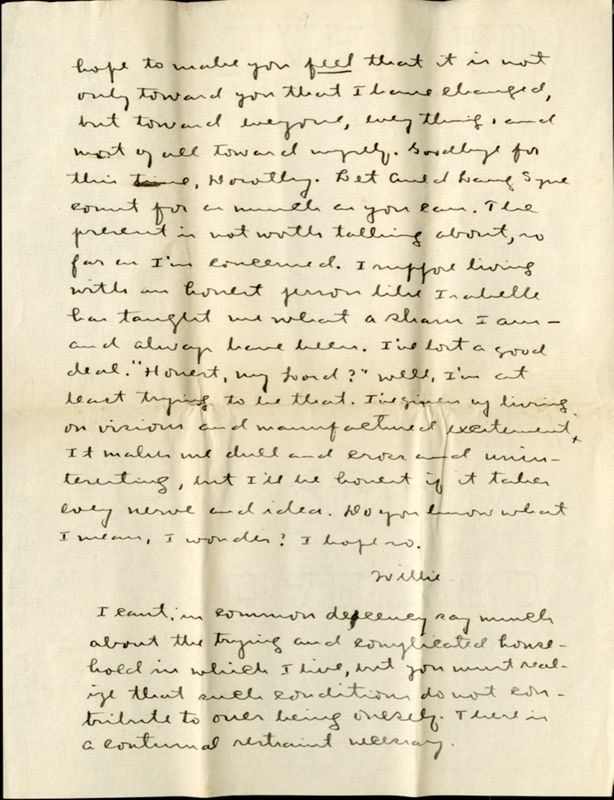 9
hope to make you feel that it is not
only toward you that I have changed,
but toward everyone, everything, and
most of all toward myself. Goodbye for
this time, Dorothy. Let Auld Lang Syne
count for as much as you can. The
present is not worth talking about, so
far as I'm concerned. I suppose living
with an honest person like Isabelle
has taught me what a sham I am –
and always have been. I've lost a good
deal. "Honest, my Lord?" Well, I'm at
least trying to be that. I've given up living
on visions and manufactured excitement.
It makes me dull and cross and unin-
teresting, but I'll be honest if it takes
every nerve and idea. Do you know what
I mean, I wonder? I hope so.
Willie
I can't in common decency say much
about the trying and complicated house-
hold in which I live, but you must real-
ize that such conditions do not con-
tribute to ones being oneself. There is
a continual restraint necessary.